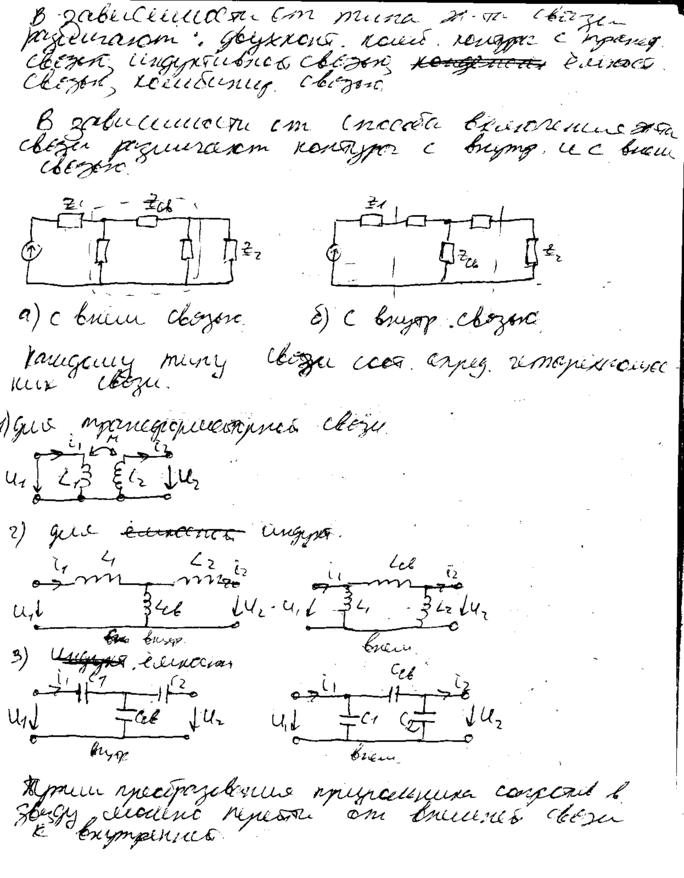 В зависимости от типа эл-та связи
различают: двухконт. колеб. контуры с транс.
связью, индуктивной связью, ёмкост.
связью, комбинир. связью.
В зависимости от способа включения эл-та
связи различают контуры с внутр. и с внеш
связью.
Z1 Zсв Z2
Z1 Zсв Z2
а) с внеш связью б) с внутр. связью
Каждому типу связи соот. опред. четырехполюс-
ник связи.
1) для трансформаторной связи.
i1 M i2
U1 L1 L2 U2
2) для индукт.
i1 L1 L2 i2
U1 Lсв U2
внутр.
i1 Lсв i2
U1 L1 L2 U2
внеш.
3) ёмкостн
i1 C1 C2
U1 Cсв U2
внутр
i1 Cсв i2
U1 C1 C2 U2
внеш.
Путём преобразования треугольника сопрот в
звезду можно перейти от внешней связи
к внутренней.